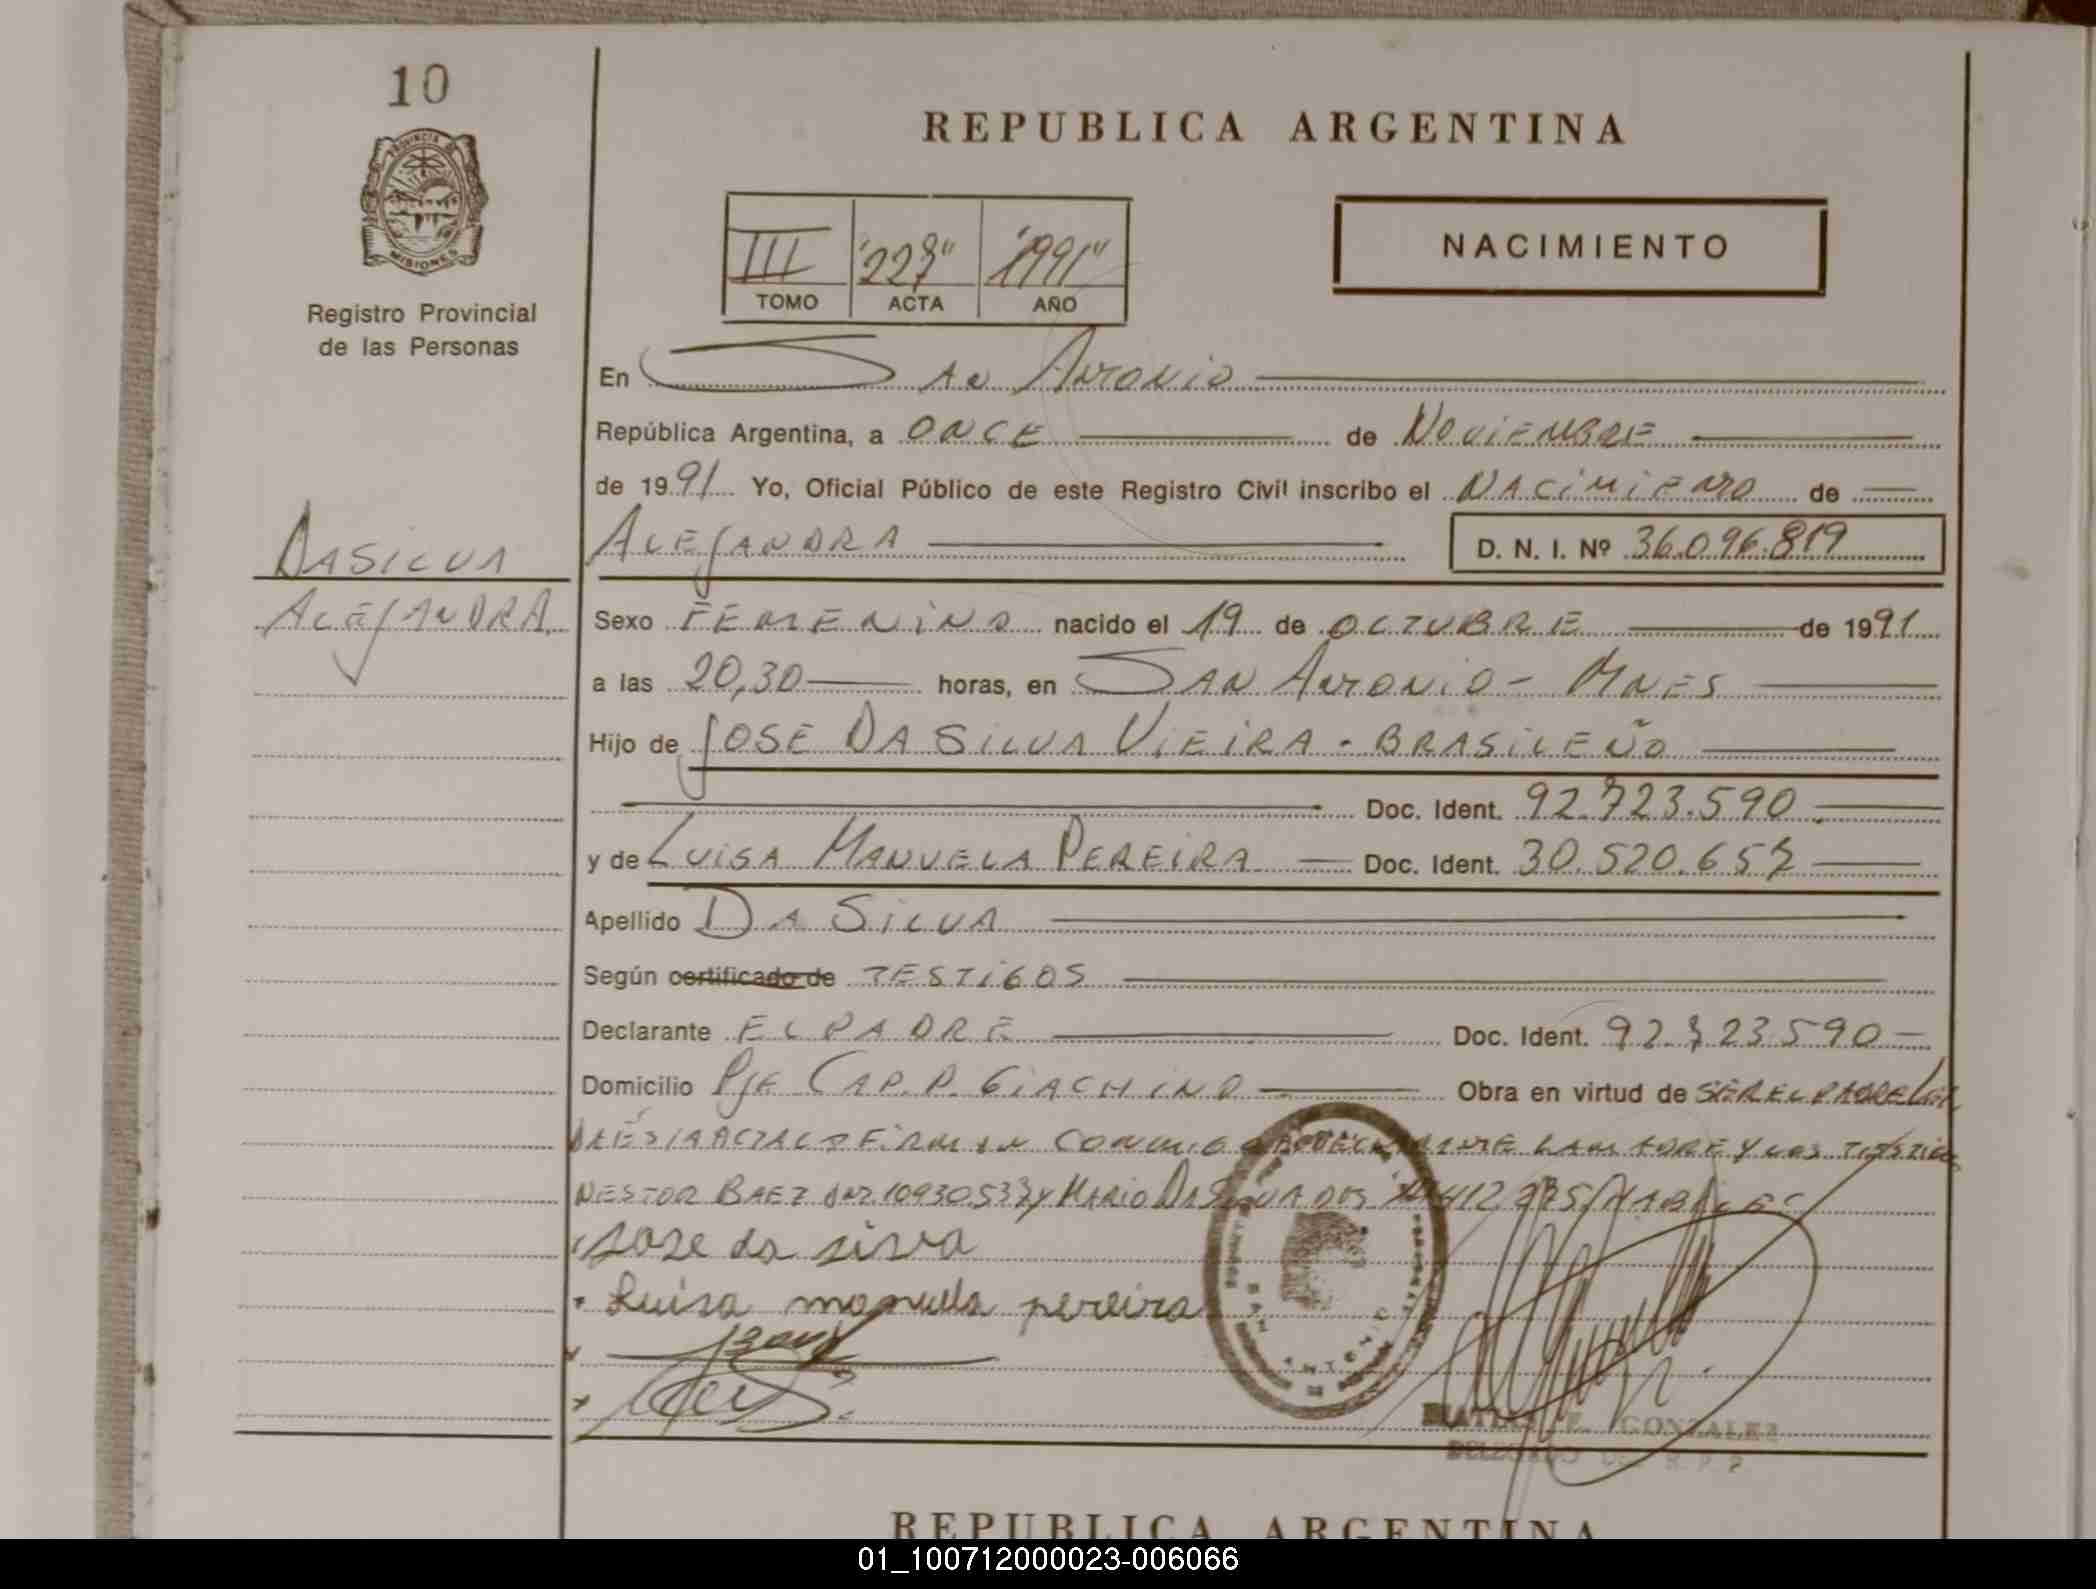 10
REPUBLICA ARGENTINA
PROVINCIA DE
MISIONES
Registro Provincial
de las Personas
III "227" "1991"
TOMO ACTA AÑO
NACIMIENTO
En San Antonio
República Argentina, a ONCE de NOVIEMBRE
de 1991 Yo, Oficial Público de este Registro Civil inscribo el NACIMIENTO de
DASILVA
ALEJANDRA D. N. I. Nº 36.096.819
ALEJANDRA
Sexo FEMENINO nacido el 19 de OCTUBRE de 1991
a las 20,30 horas, en SAN ANTONIO - MNES
Hijo de JOSE DA SILVA VIEIRA - BRASILEÑO
Doc. Ident. 92.723.590
y de LUISA MANUELA PEREIRA Doc. Ident. 30.520.657
Apellido DA SILVA
Según certificado de TESTIGOS
Declarante EL PADRE Doc. Ident. 92.723590
Domicilio PJE CAP. P. GIACHINO Obra en virtud de SER EL PADRE
ACTA FIRMAN CONMIGO DECLARANTE LA MADRE Y LOS TESTIGOS
NESTOR BAEZ Y MARIO DA SILVA
Jose da silva
Luisa manuela pereira
GONZALEZ
DELEGADO R. P. P
REPUBLICA ARGENTINA
01_100712000023-006066